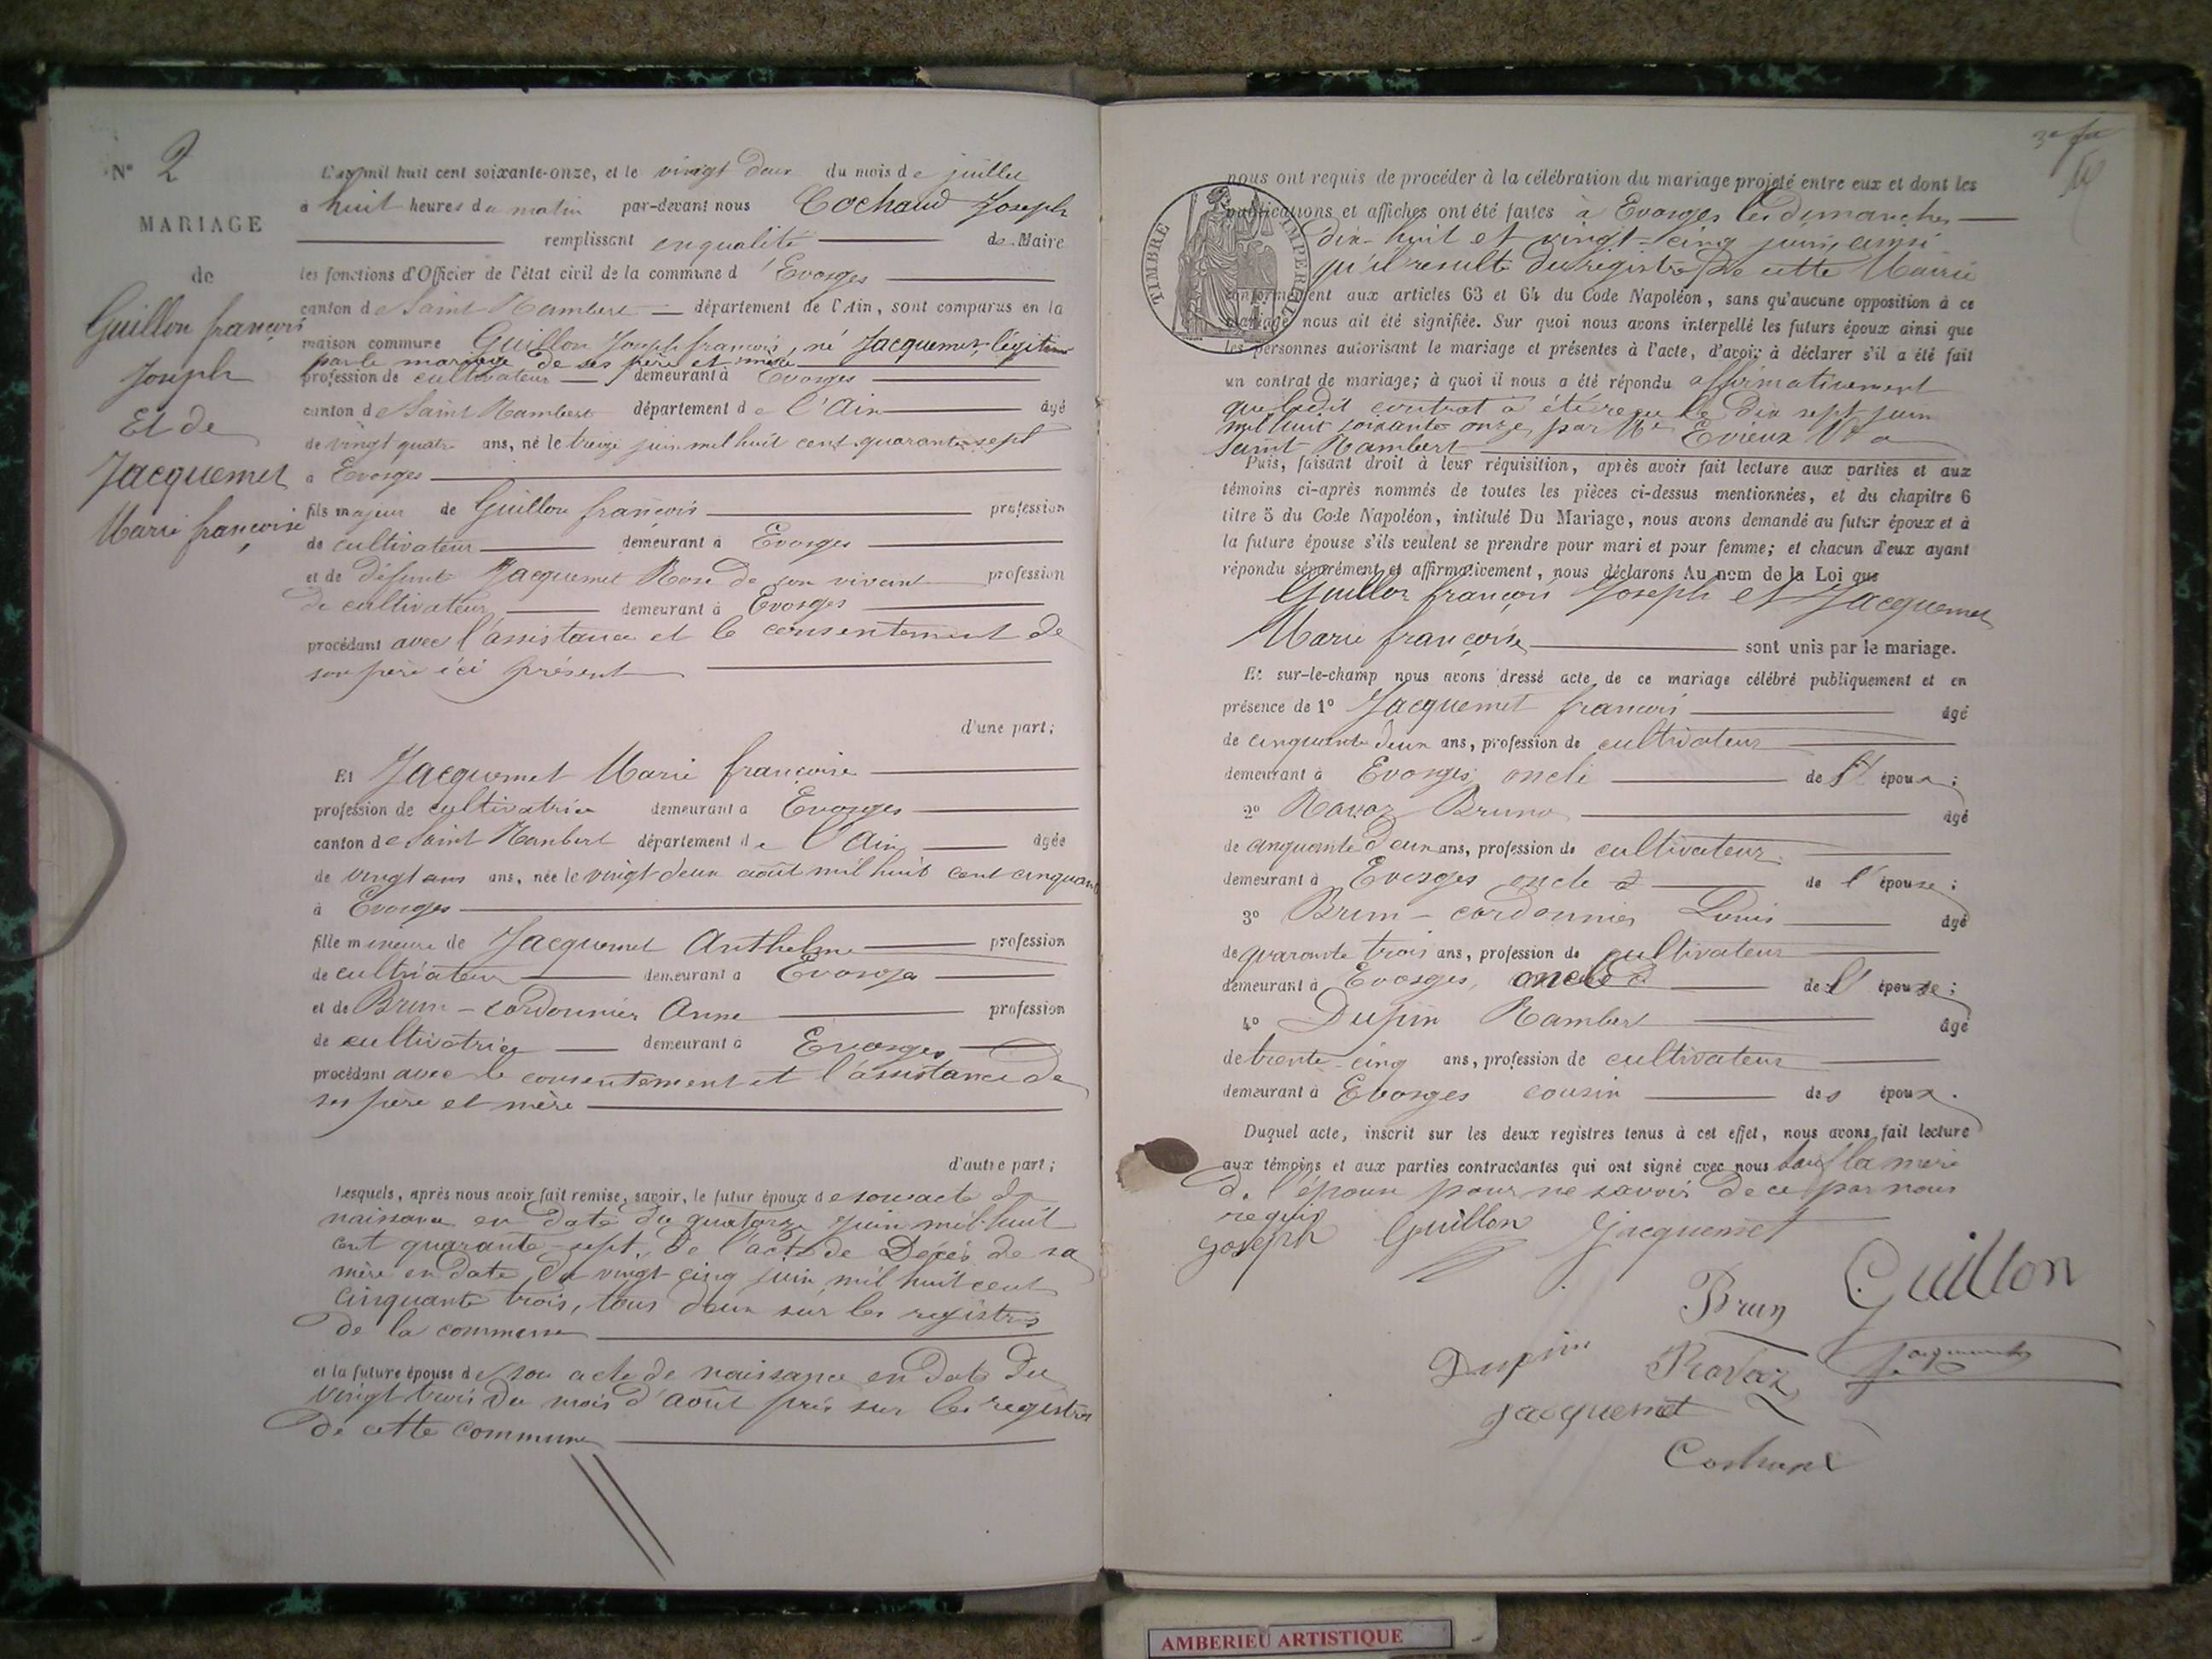 N° 2
MARIAGE
de
Guillon françois
Joseph
Et de
Jacquemet
Marie françoise
L'an mil huit cent soixante-onze, et le vingt deux du mois de juillet
à huit heures du matin par-devant nous Cochaud Joseph
remplissant en qualité de Maire
les fonctions d'Officier de l'état civil de la commune d'Evosges
canton de Saint Rambert département de l'Ain, sont comparus en la
maison commune Guillon Joseph françois, né Jacquemet, légitimé
par le mariage de ses père et mère
profession de cultivateur demeurant à Evosges
canton de Saint Rambert département de l'Ain âgé
de vingt quatre ans, né le treize juin mil huit cent quarante sept
à Evosges
fils majeur de Guillon françois profession
de cultivateur demeurant à Evosges
et de défunte Jacquemet Rose de son vivant profession
de cultivateur demeurant à Evosges
procédant avec l'assistance et le consentement de
son père ici présent
d'une part;
Et Jacquemet Marie francoise
profession de cultivatrice demeurant à Evosges
canton de Saint Rambert département de l'Ain âgée
de vingt ans ans, née le vingt deux août mil huit cent cinquante
à Evosges
fille mineure de Jacquemet Anthelme profession
de cultivateur demeurant à Evosges
et de Brun-cordonnier Anne profession
de cultivatrice demeurant à Evosges
procédant avec le consentement et l'assistance de
ses père et mère
d'autre part;
Lesquels, après nous avoir fait remise, savoir, le futur époux de son acte de
naissance en date du quatorze juin mil huit
cent quarante-sept, de l'acte de Décès de sa
mère en date du vingt-cinq juin mil huit cent
cinquante trois, tous deux sur les registres
de la commune
et la future épouse de son acte de naissance en date du
vingt trois du mois d'août pris sur les registres
de cette commune
TIMBRE IMPERIAL
nous ont requis de procéder à la célébration du mariage projeté entre eux et dont les
publications et affiches ont été faites à Evosges les dimanches
dix-huit et vingt-cinq juin, ainsi
qu'il résulte du registre de cette Mairie
conformément aux articles 63 et 64 du Code Napoléon, sans qu'aucune opposition à ce
mariage nous ait été signifiée. Sur quoi nous avons interpellé les futurs époux ainsi que
les personnes autorisant le mariage et présentes à l'acte, d'avoir à déclarer s'il a été fait
un contrat de mariage; à quoi il nous a été répondu affirmativement
que ledit contrat a été reçu le dix sept juin
mil huit soixante onze, par Me Evieux Nre a
Saint Rambert
Puis, faisant droit à leur réquisition, après avoir fait lecture aux parties et aux
témoins ci-après nommés de toutes les pièces ci-dessus mentionnées, et du chapitre 6
titre 5 du Code Napoléon, intitulé Du Mariage, nous avons demandé au futur époux et à
la future épouse s'ils veulent se prendre pour mari et pour femme; et chacun d'eux ayant
répondu séparément et affirmativement, nous déclarons Au nom de la Loi que
Guillon françois Joseph et Jacquemet
Marie françoise sont unis par le mariage.
Et sur-le-champ nous avons dressé acte de ce mariage célébré publiquement et en
présence de 1° Jacquemet francois âgé
de cinquante deux ans, profession de cultivateur
demeurant à Evosges, oncle de l'époux;
2° Ravaz Bruno âgé
de cinquante deux ans, profession de cultivateur
demeurant à Evosges oncle de l'épouse;
3° Brun-cordonnier Louis âgé
de quarante trois ans, profession de cultivateur
demeurant à Evosges, oncle de l'épouse;
4° Dupin Rambert âgé
de trente-cinq ans, profession de cultivateur
demeurant à Evosges cousin des époux.
Duquel acte, inscrit sur les deux registres tenus à cet effet, nous avons fait lecture
aux témoins et aux parties contractantes qui ont signé avec nous sauf la mère
de l'épouse pour ne savoir de ce par nous
requis
Joseph Guillon Jacquemet
Brun Guillon
Dupin Ravaz
Jacquemet
Cochaud
AMBERIEU ARTISTIQUE